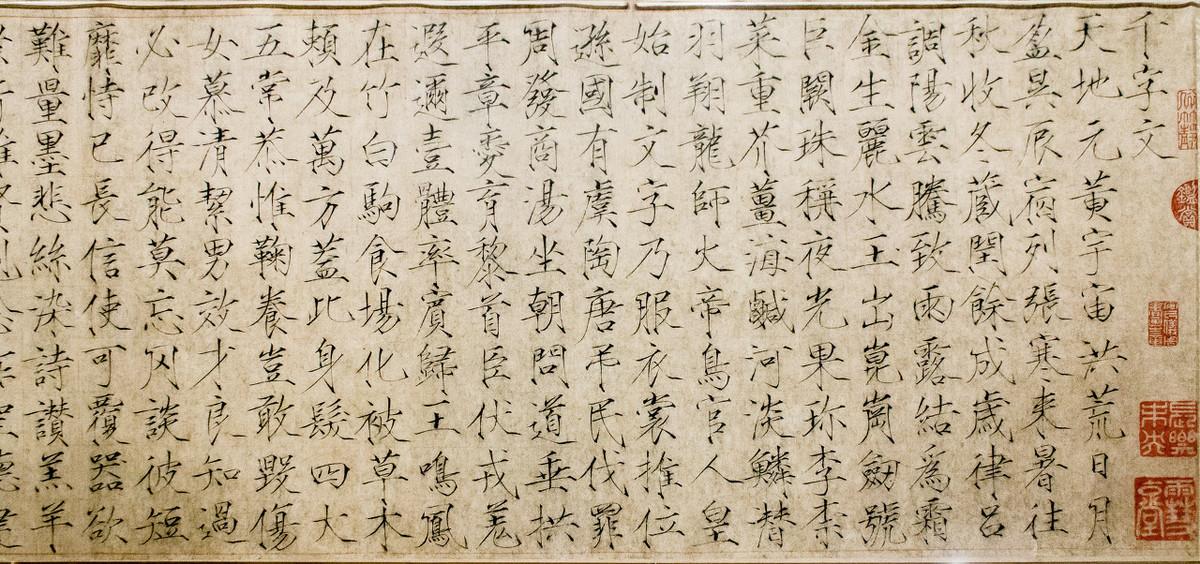 千字文
天地元黃宇宙洪荒日月
盈昃辰宿列張寒来暑往
秋收冬藏閏餘成歲律吕
調陽雲騰致雨露結為霜
金生麗水玉出崑崗劒號
巨闕珠稱夜光果珎李柰
菜重芥薑海鹹河淡鱗潜
羽翔龍師火帝鳥官人皇
始制文字乃服衣裳推位
遜國有虞陶唐弔民伐罪
周發商湯坐朝問道垂拱
平章愛育黎首臣伏戎羌
遐邇壹體率賓歸王鳴鳳
在竹白駒食場化被草木
賴及萬方蓋此身髮四大
五常恭惟鞠養豈敢毀傷
女慕清絜男效才良知過
必改得能莫忘罔談彼短
靡恃己長信使可覆器欲
難量墨悲絲染詩讃羔羊